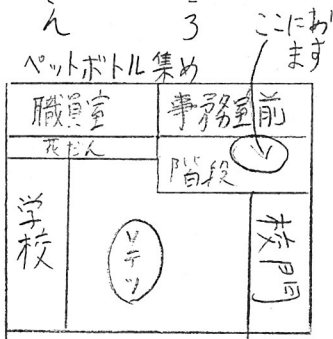 え
ろ
ここにあります
ペットボトル集め
職員室
事務室前
花だん
階段
学校
ソテツ
校門